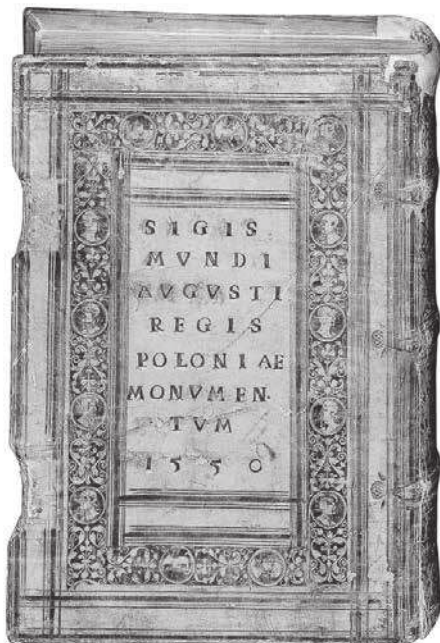 SIGIS
MVNDI
AVGVSTI
REGIS
POLONIAE
MONVMEN-
TVM
1550